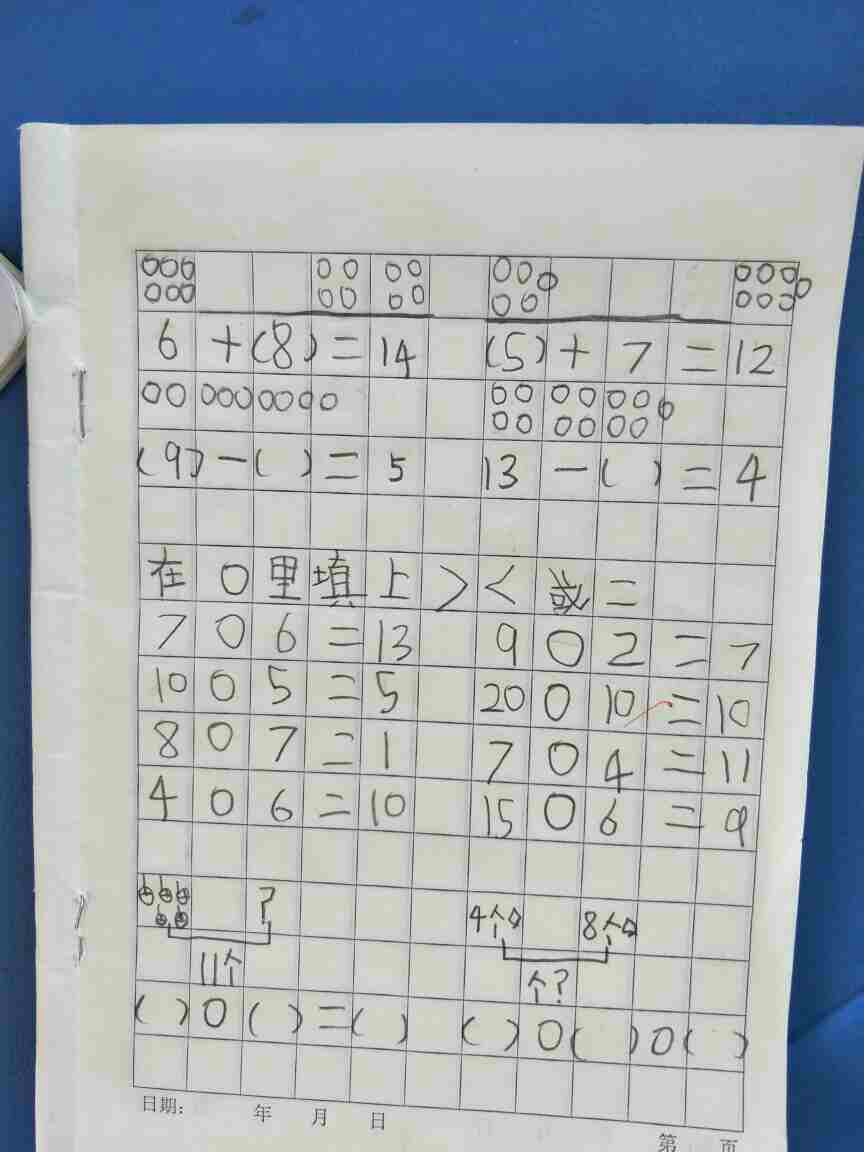 6 + (8) = 14 (5) + 7 = 12
(9) - ( ) = 5 13 - ( ) = 4
在 ○ 里 填 上 > < 或 =
7 ○ 6 = 13 9 ○ 2 = 7
10 ○ 5 = 5 20 ○ 10 = 10
8 ○ 7 = 1 7 ○ 4 = 11
4 ○ 6 = 10 15 ○ 6 = 9
? 4个 8个
11个 个?
( ) ○ ( ) = ( ) ( ) ○ ( ) ○ ( )
日期: 年 月 日
第 页